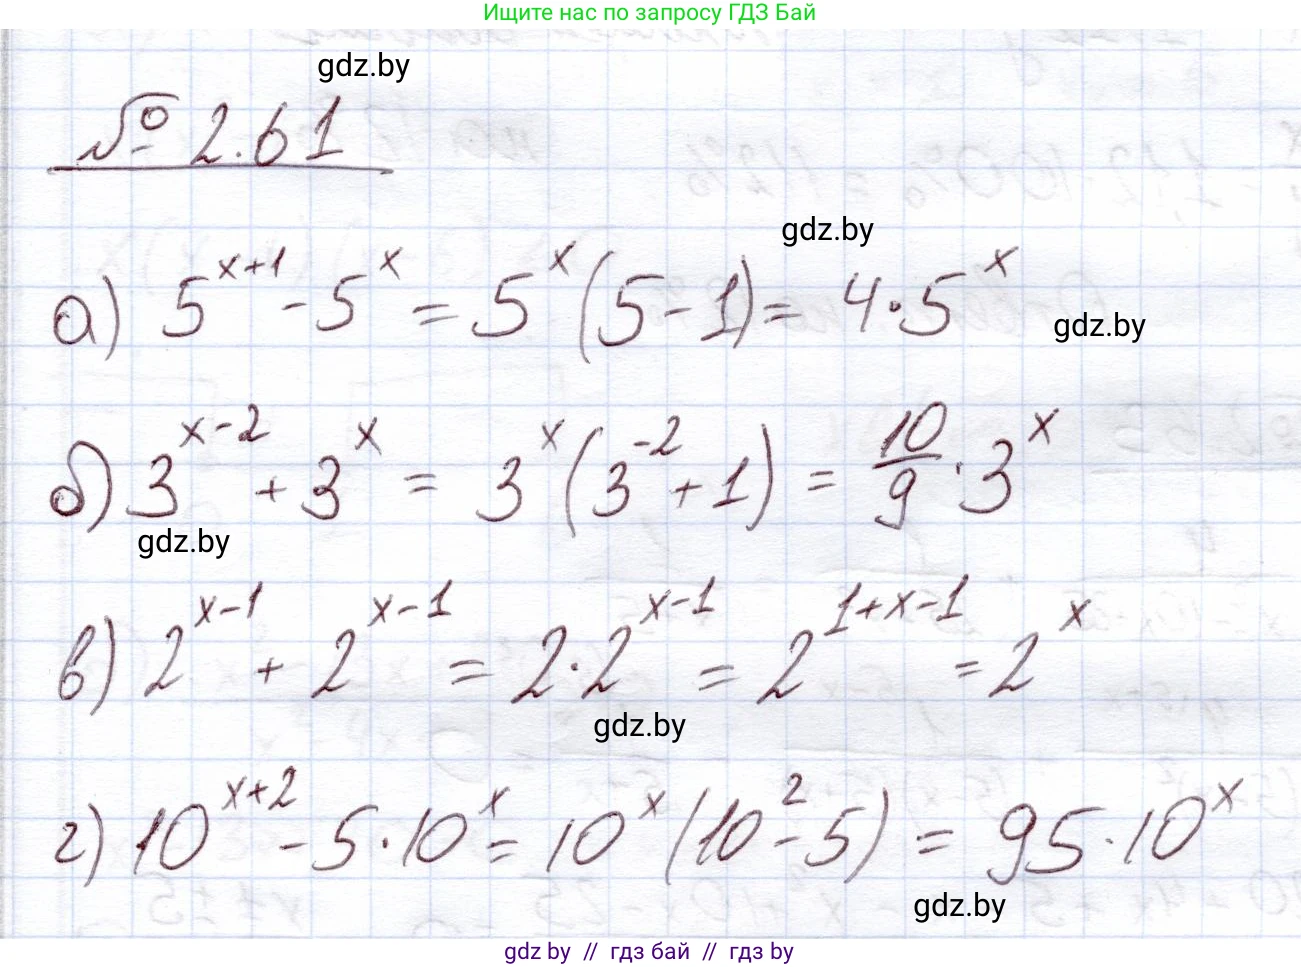 Ищите нас по запросу ГДЗ Бай
gdz.by
№ 2.61
gdz.by
а) 5^{x+1} - 5^x = 5^x (5 - 1) = 4 · 5^x
gdz.by
б) 3^{x-2} + 3^x = 3^x (3^{-2} + 1) = \frac{10}{9} · 3^x
gdz.by
в) 2^{x-1} + 2^{x-1} = 2 · 2^{x-1} = 2^{1+x-1} = 2^x
gdz.by
г) 10^{x+2} - 5 · 10^x = 10^x (10^2 - 5) = 95 · 10^x
gdz.by
gdz by // гдз бай // гдз by